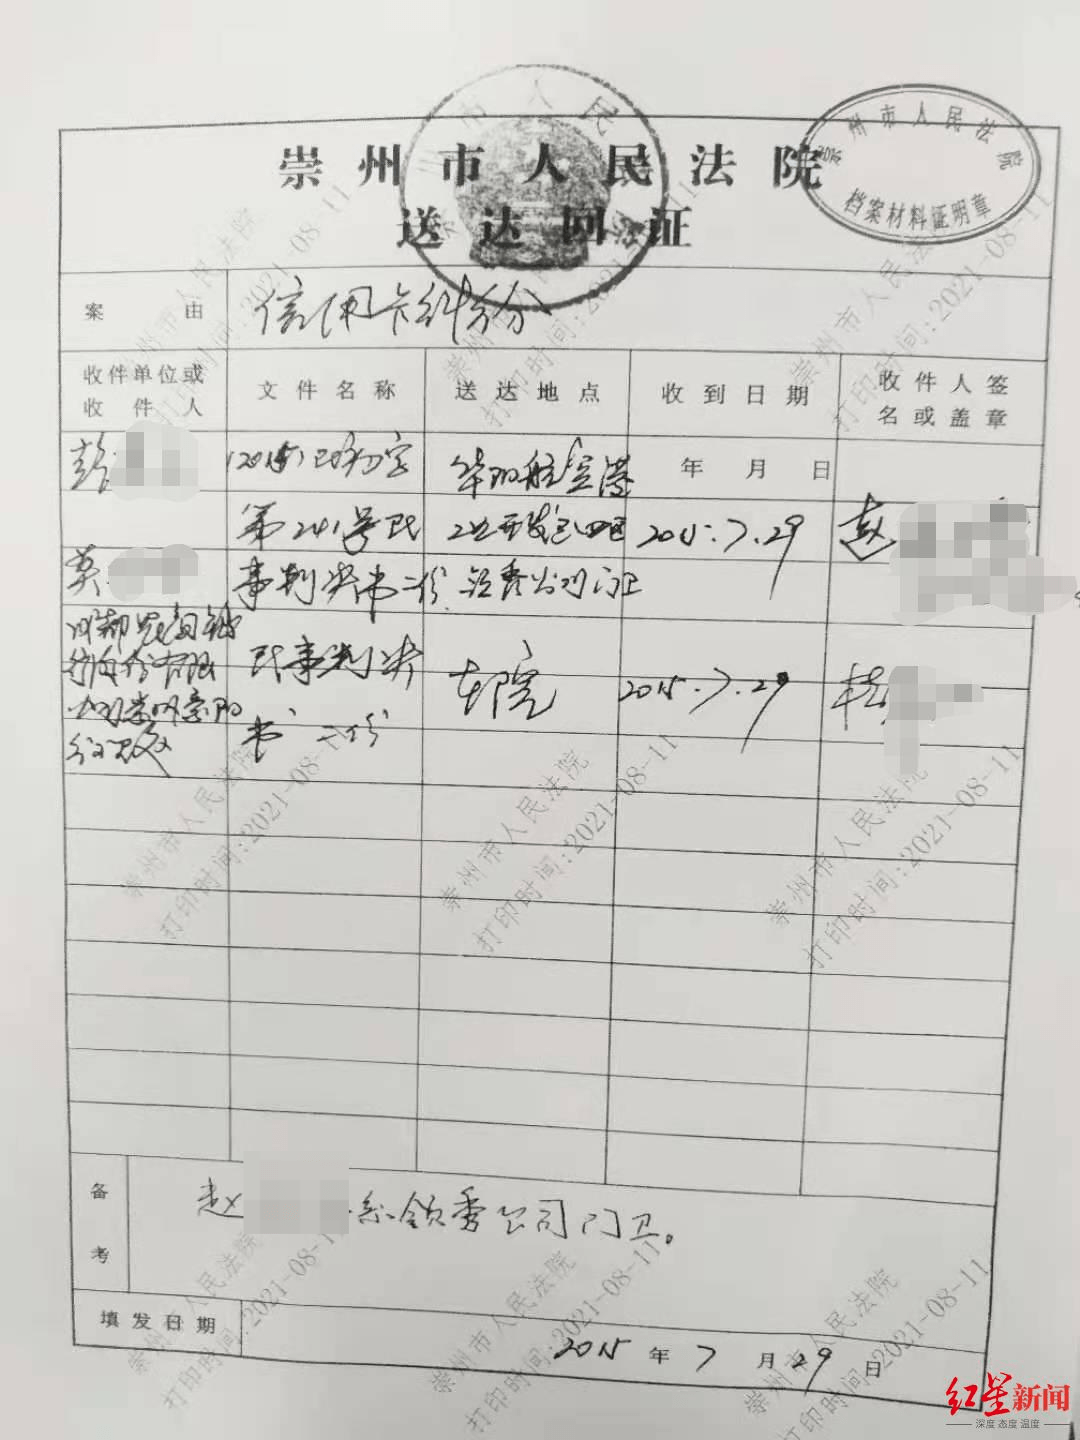 崇州市人民法院
送达回证
崇州市人民法院
档案材料证明章
案由
信用卡纠纷
收件单位或
收件人
文件名称
送达地点
收到日期
收件人签
名或盖章
彭
(2015)
字
华阳航空港
年 月 日
第241号民
2015.7.29
赵
莫
事判决书二份
领秀公司门卫
成都
民事判决
书 二份
本院
2015.7.29
杜
备考
赵
系领秀公司门卫。
填发日期
2015年7月29日
崇州市人民法院
打印时间:2021-08-11
崇州市人民法院
打印时间:2021-08-11
崇州市人民法院
打印时间:2021-08-11
崇州市人民法院
打印时间:2021-08-11
崇州市人民法院
打印时间:2021-08-11
崇州市人民法院
打印时间:2021-08-11
崇州市人民法院
打印时间:2021-08-11
崇州市人民法院
打印时间:2021-08-11
崇州市人民法院
打印时间:2021-08-11
红星新闻
深度 态度 温度